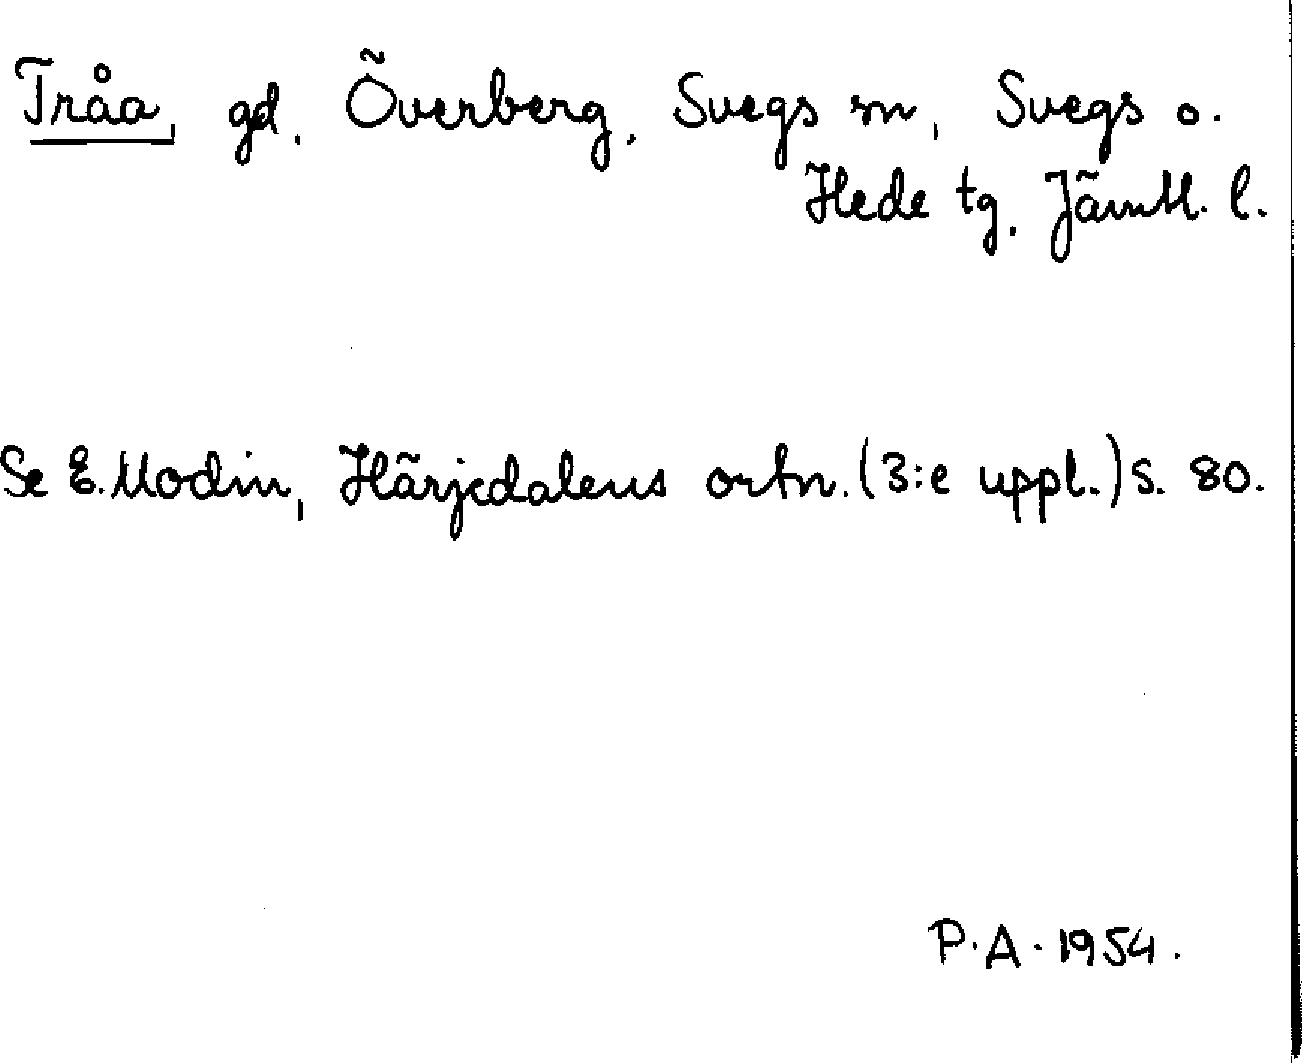 Tråa, gd. Överberg, Svegs sn, Svegs o.
Hede tg. Jämtl. l.
Se E. Modin, Härjedalens ortn. (3:e uppl.) s. 80.
P.A. 1954.